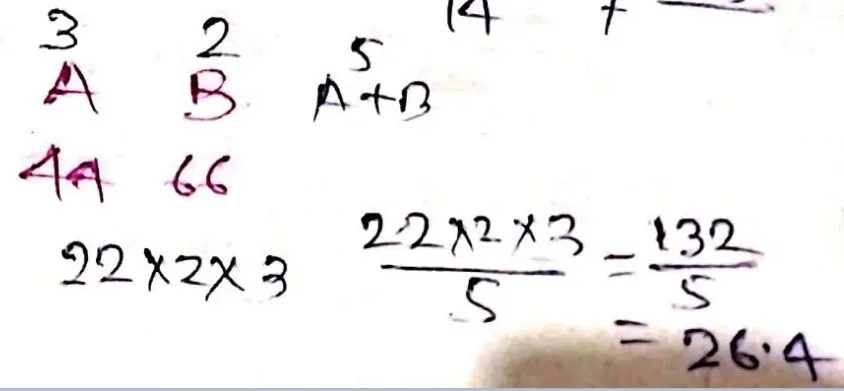 14 +
3 2 5
A B A+B
44 66
22×2×3 22×2×3/5 = 132/5
= 26.4